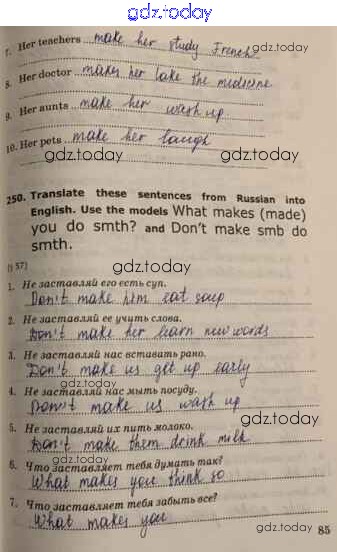 gdz.today
7. Her teachers make her study French
gdz.today
8. Her doctor makes her take the medicine
9. Her aunts make her wash up
10. Her pets make her laugh
gdz.today gdz.today
250. Translate these sentences from Russian into
English. Use the models What makes (made)
you do smth? and Don't make smb do
smth.
gdz.today
(§ 57)
1. Не заставляй его есть суп.
Don't make him eat soup
2. Не заставляй ее учить слова.
Don't make her learn new words
3. Не заставляй нас вставать рано.
Don't make us get up early
gdz.today
4. Не заставляй нас мыть посуду.
Don't make us wash up
gdz.today
5. Не заставляй их пить молоко.
Don't make them drink milk
gdz.today
6. Что заставляет тебя думать так?
What makes you think so
7. Что заставляет тебя забыть все?
What makes you
gdz.today 85